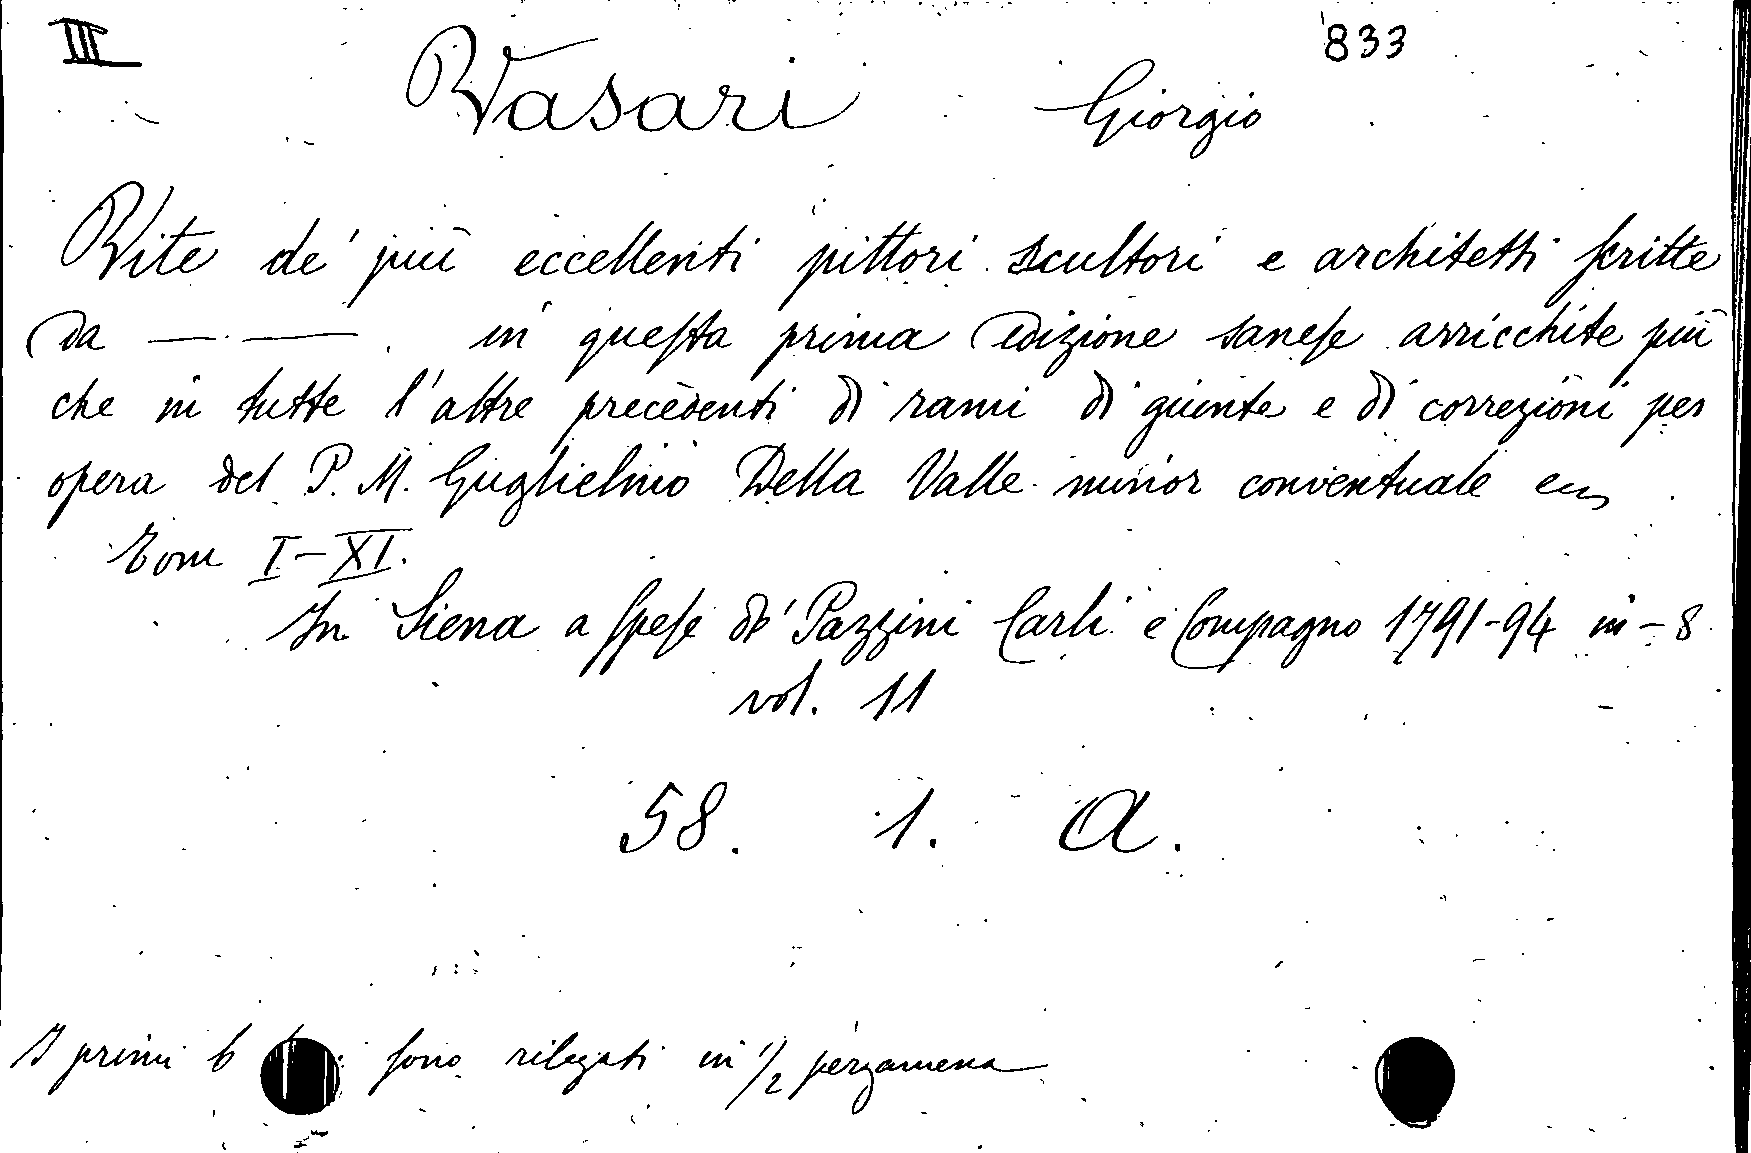 III 833
Vasari Giorgio
Vite de' più eccellenti pittori scultori e architetti scritte
da — — . in questa prima edizione sanese arricchite più
che in tutte l'altre precedenti di rami di giunte e di correzioni per
opera del P. M. Guglielmo Della Valle minor conventuale ecc
Tom I-XI.
In Siena a spese de' Pazzini Carli e Compagno 1791-94 in-8
vol. 11
58. 1. A.
I primi 6 sono rilegati in 1/2 pergamena